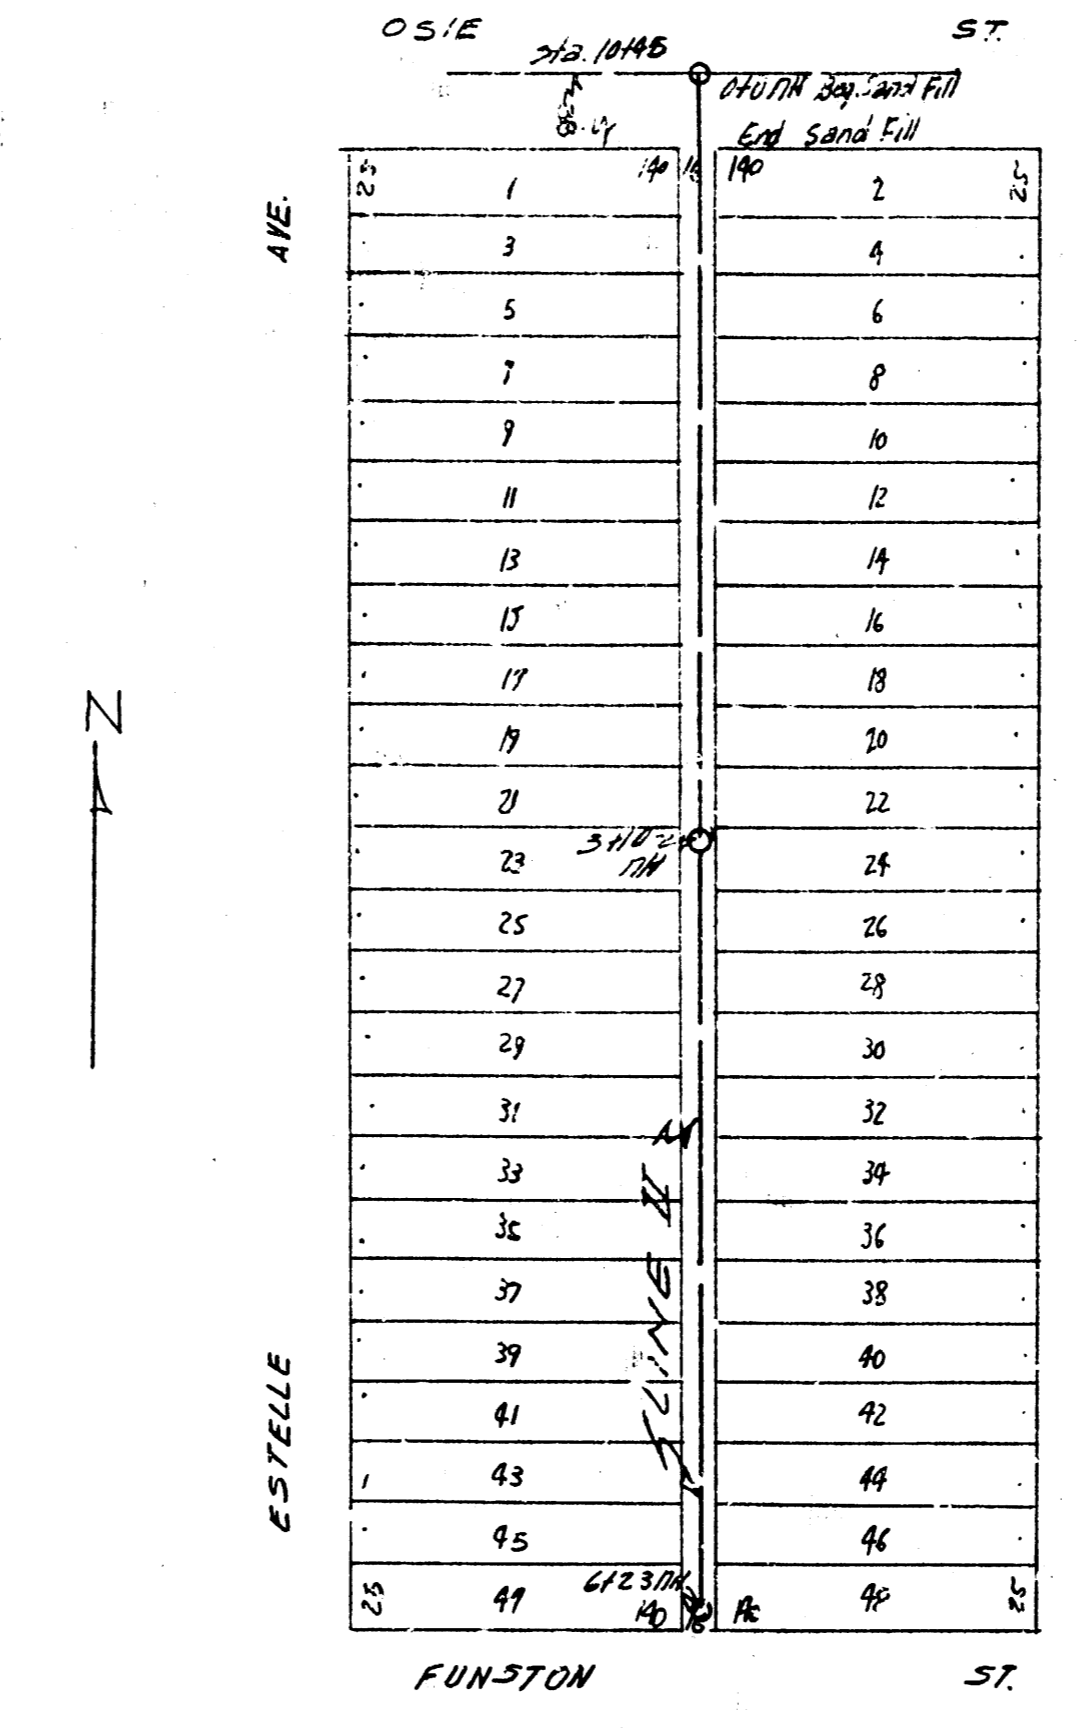 OSIE ST.
Sta. 10+45
0+0 MH Beg. Sand Fill
End Sand Fill
AVE.
25 140 16 140 25
1 2
3 4
5 6
7 8
9 10
11 12
13 14
15 16
17 18
19 20
21 22
3+10
MH
23 24
25 26
N
27 28
29 30
31 32
33 34
35 36
37 38
39 40
41 42
43 44
45 46
6+23 MH
25 47 140 16 48 25
LINE
ESTELLE
FUNSTON ST.